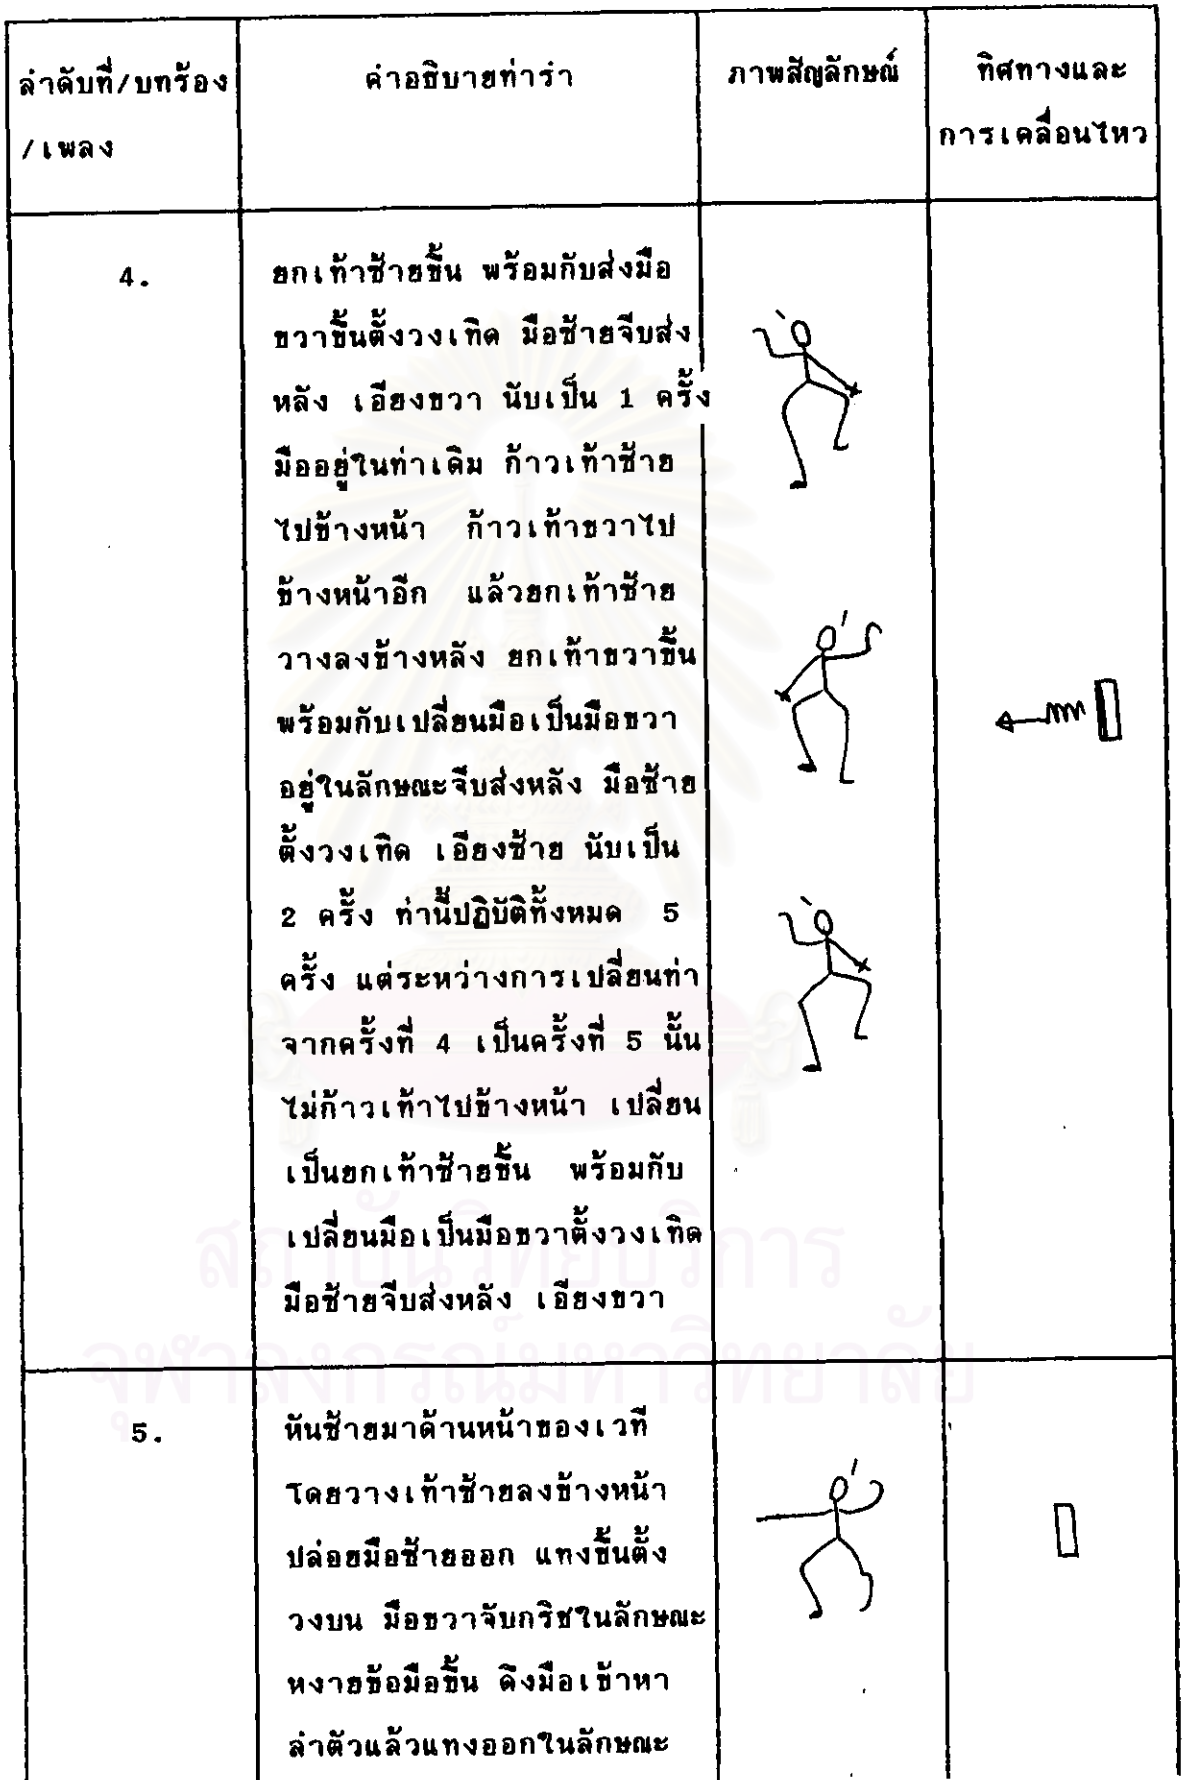 ลำดับที่/บทร้อง
/เพลง
คำอธิบายท่ารำ
ภาพสัญลักษณ์
ทิศทางและ
การเคลื่อนไหว
4.
ยกเท้าซ้ายขึ้น พร้อมกับส่งมือ
ขวาขึ้นตั้งวงเทิด มือซ้ายจีบส่ง
หลัง เอียงขวา นับเป็น 1 ครั้ง
มืออยู่ในท่าเดิม ก้าวเท้าซ้าย
ไปข้างหน้า ก้าวเท้าขวาไป
ข้างหน้าอีก แล้วยกเท้าซ้าย
วางลงข้างหลัง ยกเท้าขวาขึ้น
พร้อมกับเปลี่ยนมือเป็นมือขวา
อยู่ในลักษณะจีบส่งหลัง มือซ้าย
ตั้งวงเทิด เอียงซ้าย นับเป็น
2 ครั้ง ท่านี้ปฏิบัติทั้งหมด 5
ครั้ง แต่ระหว่างการเปลี่ยนท่า
จากครั้งที่ 4 เป็นครั้งที่ 5 นั้น
ไม่ก้าวเท้าไปข้างหน้า เปลี่ยน
เป็นยกเท้าซ้ายขึ้น พร้อมกับ
เปลี่ยนมือเป็นมือขวาตั้งวงเทิด
มือซ้ายจีบส่งหลัง เอียงขวา
5.
หันซ้ายมาด้านหน้าของเวที
โดยวางเท้าซ้ายลงข้างหน้า
ปล่อยมือซ้ายออก แทงขึ้นตั้ง
วงบน มือขวาจับกริชในลักษณะ
หงายข้อมือขึ้น ดึงมือเข้าหา
ลำตัวแล้วแทงออกในลักษณะ
สถาบันวิทยบริการ
จุฬาลงกรณ์มหาวิทยาลัย